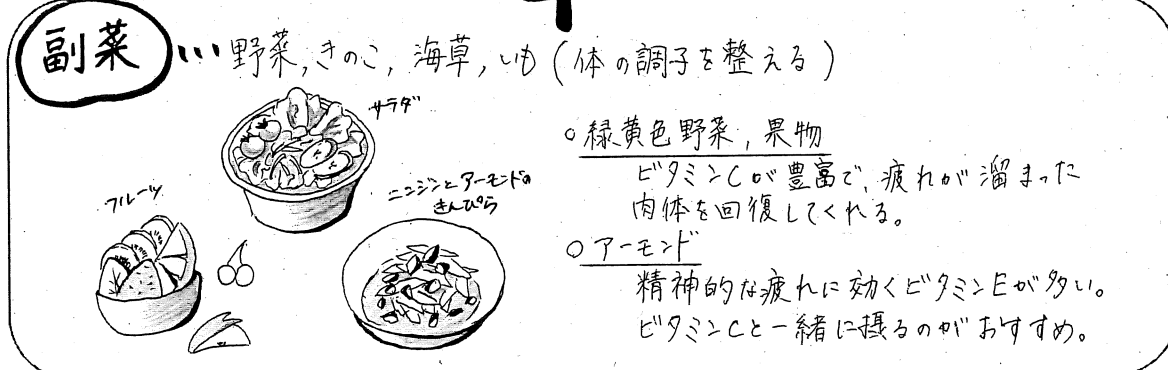 副菜 ・・・ 野菜, きのこ, 海草, いも (体の調子を整える)
サラダ
フルーツ
ニンジンとアーモンドの
きんぴら
○ 緑黄色野菜, 果物
ビタミンCが豊富で、疲れが溜まった
肉体を回復してくれる。
○ アーモンド
精神的な疲れに効くビタミンEが多い。
ビタミンCと一緒に摂るのがおすすめ。